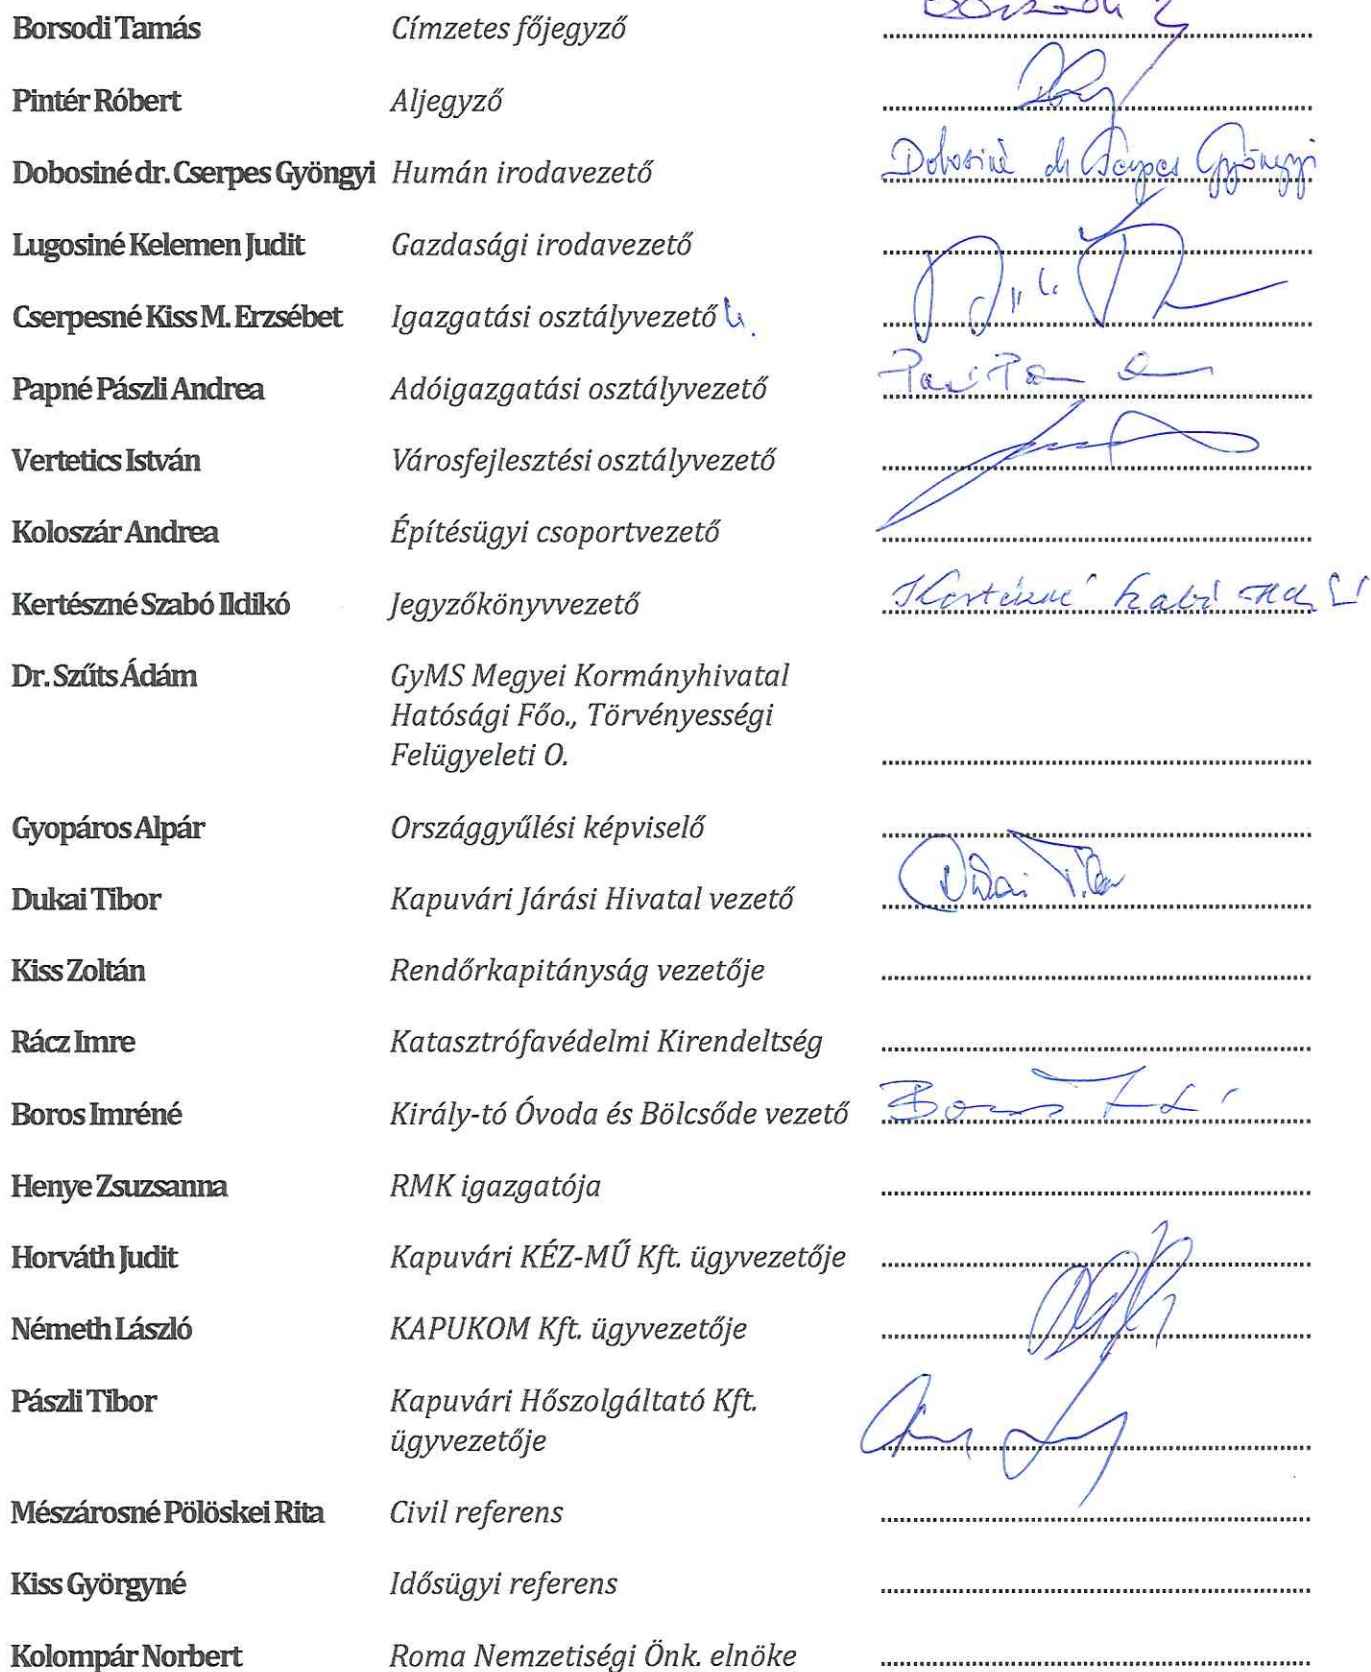 Borsodi Tamás Címzetes főjegyző Borsodi
Pintér Róbert Aljegyző
Dobosiné dr. Cserpes Gyöngyi Humán irodavezető Dobosiné dr Cserpes Gyöngyi
Lugosiné Kelemen Judit Gazdasági irodavezető
Cserpesné Kiss M. Erzsébet Igazgatási osztályvezető h.
Papné Pászli Andrea Adóigazgatási osztályvezető
Vertetics István Városfejlesztési osztályvezető
Koloszár Andrea Építésügyi csoportvezető
Kertészné Szabó Ildikó Jegyzőkönyvvezető Kertészné Szabó
Dr. Szűts Ádám GyMS Megyei Kormányhivatal
Hatósági Főo., Törvényességi
Felügyeleti O.
Gyopáros Alpár Országgyűlési képviselő
Dukai Tibor Kapuvári Járási Hivatal vezető Dukai Tibor
Kiss Zoltán Rendőrkapitányság vezetője
Rácz Imre Katasztrófavédelmi Kirendeltség
Boros Imréné Király-tó Óvoda és Bölcsőde vezető Boros
Henye Zsuzsanna RMK igazgatója
Horváth Judit Kapuvári KÉZ-MŰ Kft. ügyvezetője
Németh László KAPUKOM Kft. ügyvezetője
Pászli Tibor Kapuvári Hőszolgáltató Kft.
ügyvezetője
Mészárosné Pölöskei Rita Civil referens
Kiss Györgyné Idősügyi referens
Kolompár Norbert Roma Nemzetiségi Önk. elnöke